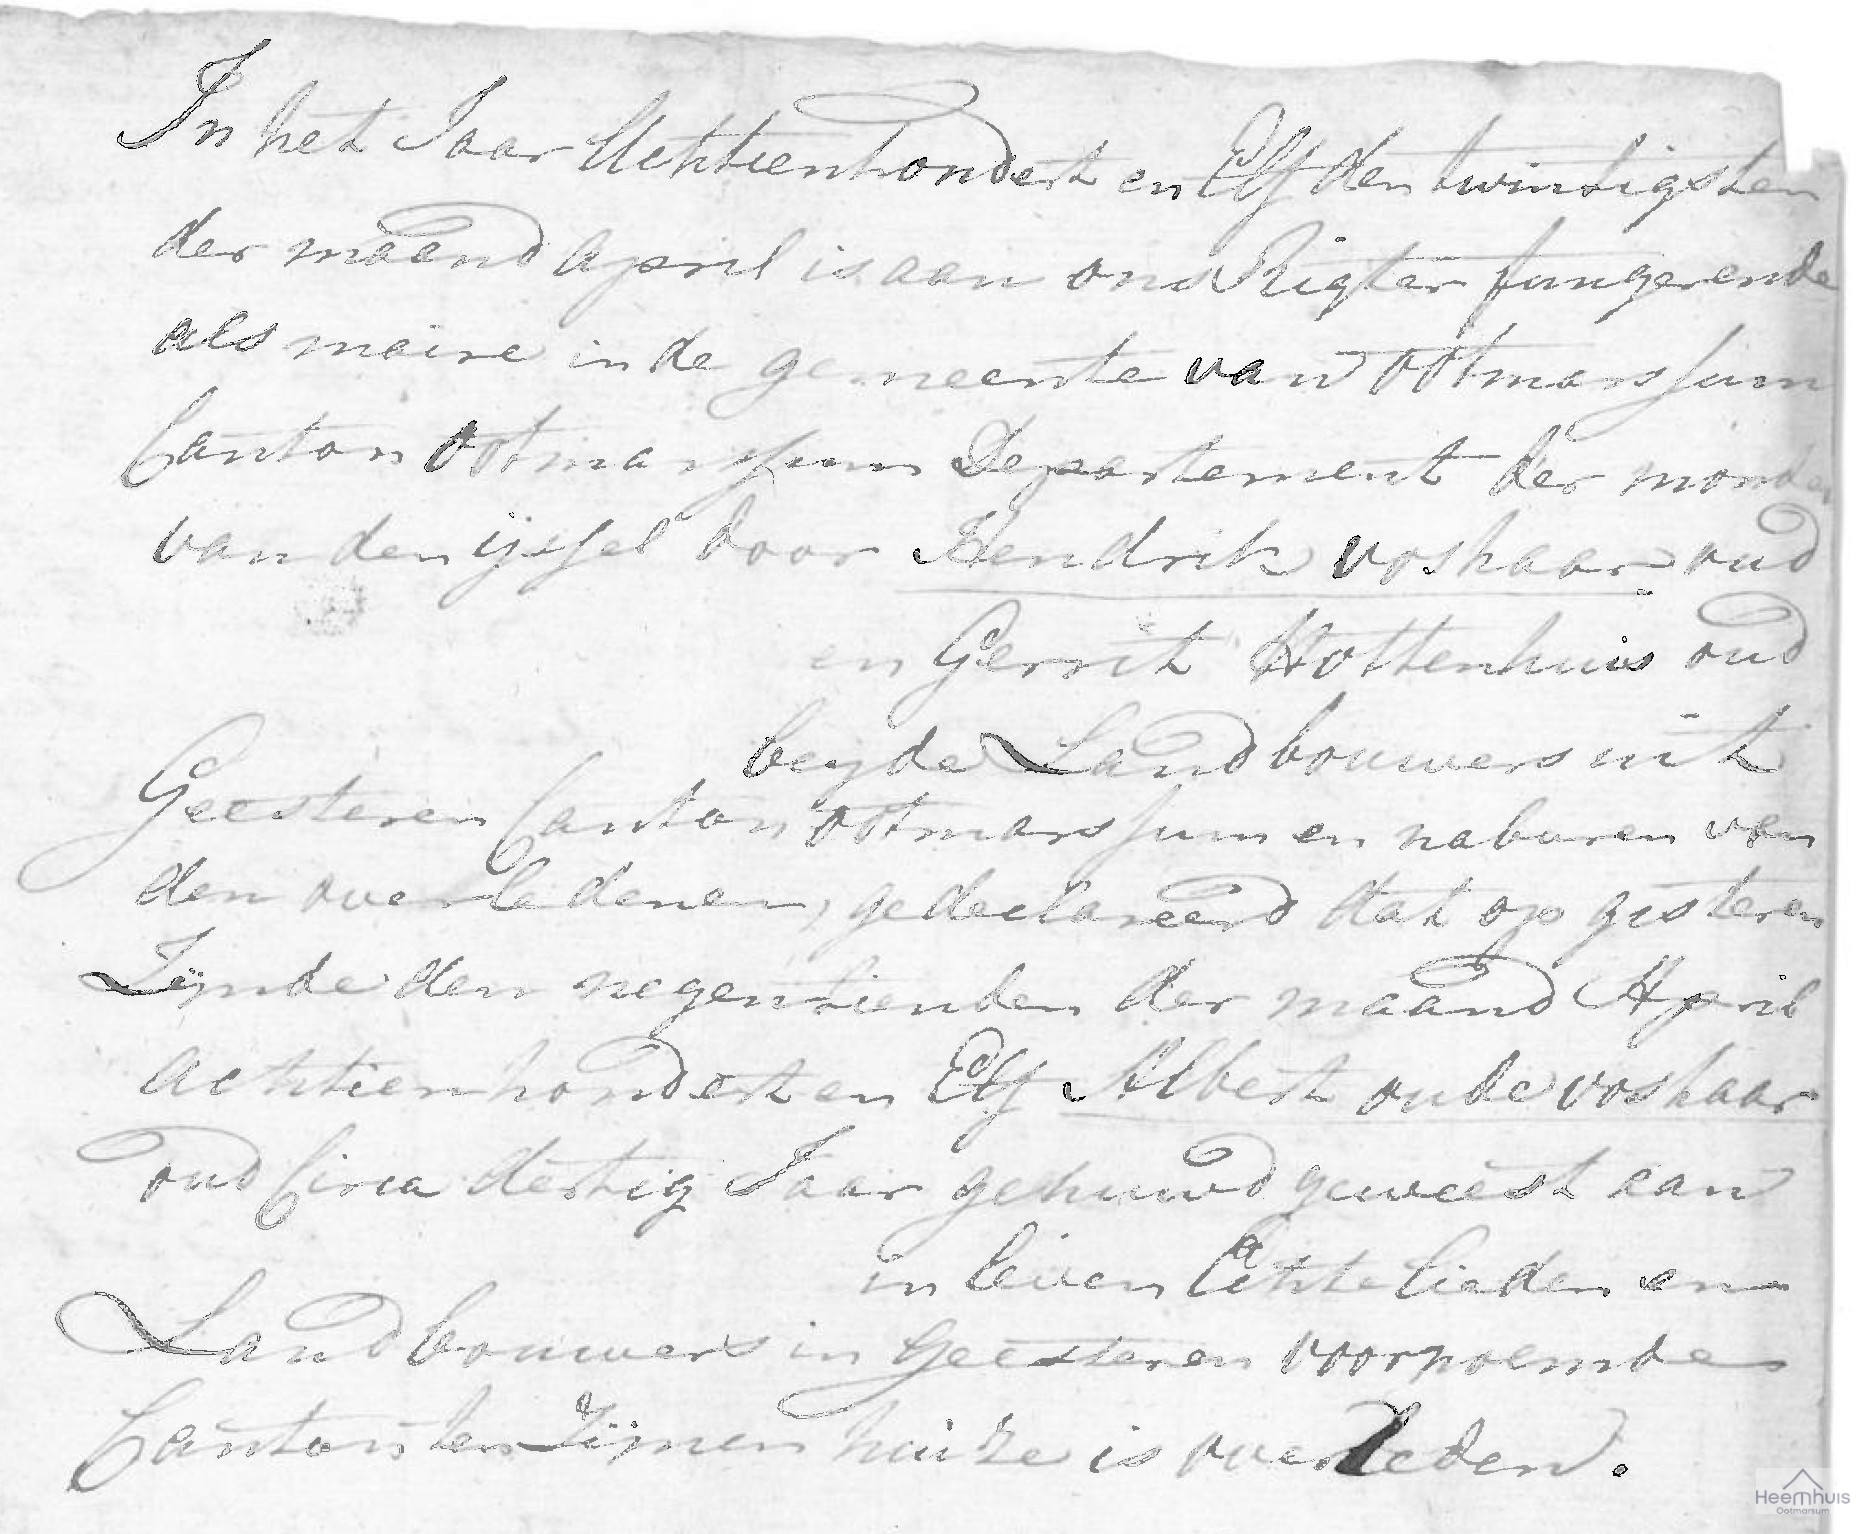 In het Jaar Achttienhondert en Elf den twintigsten
der maend april is aan ons Rigter fungerende
als maire in de gemeente van ootmarssum
Canton Ootmarssum Departement der monden
van den ijssel door Hendrik voshaar oud
en Gerrit Hottenhuis oud
beyde Landbouwers uit
Geesteren Canton ootmarssum en naburen van
den overledenen, gedeclareerd dat op gisteren
Zijnde den negentienden der maand April
achttienhondert en Elf Albert oude voshaar
oud Circa dertig Jaar gehuwd geweest aan
in leven Echtelieden en
Landbouwers in Geesteren voornoemde
Canton ten Zijnen huize is overleden.
Heemhuis
Ootmarsum